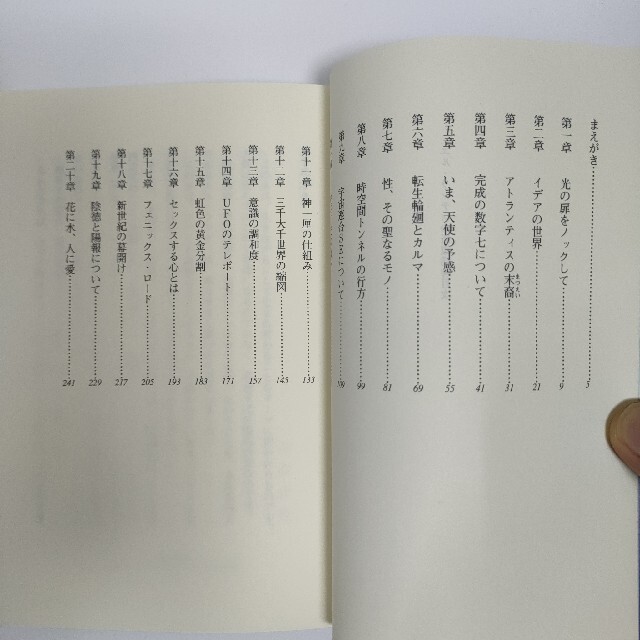 まえがき……………………5
第一章 光の扉をノックして……………………9
第二章 イデアの世界……………………21
第三章 アトランティスの末裔……………………31
まつえい
第四章 完成の数字七について……………………41
第五章 いま、天使の予感……………………55
第六章 転生輪廻とカルマ……………………69
第七章 性、その聖なるモノ……………………81
第八章 時空間トンネルの行方……………………99
第九章 宇宙連合SEについて……………………109
第十一章 神一厘の仕組み……………………133
第十二章 三千大千世界の縮図……………………145
第十三章 意識の調和度……………………157
第十四章 UFOのテレポート……………………171
第十五章 虹色の黄金分割……………………183
第十六章 セックスする心とは……………………193
第十七章 フェニックス・ロード……………………205
第十八章 新世紀の幕開け……………………217
第十九章 陰徳と陽報について……………………229
第二十章 花に水、人に愛……………………241